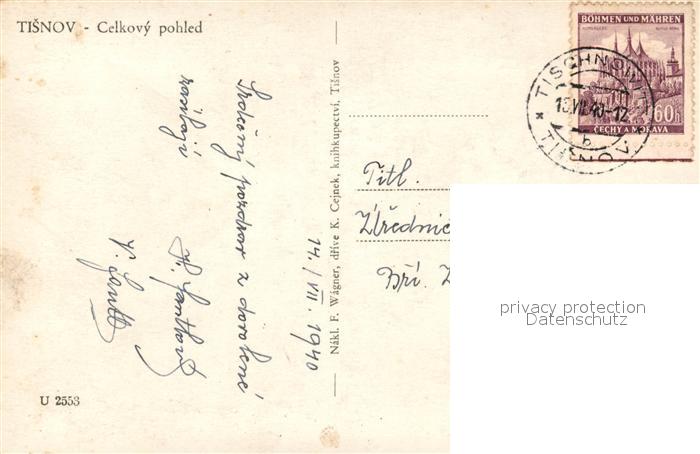 TIŠNOV - Celkový pohled
BÖHMEN UND MÄHREN
60h
ČECHY A MORAVA
TISCHNOWITZ
13.VII.40-12
b
TIŠNOV
Srdečný pozdrav z dovolené
zasílají
14./VII. 1940
Nákl. F. Wágner, dříve K. Cejnek, knihkupectví, Tišnov
Titl.
Bří.
U 2553
privacy protection
Datenschutz